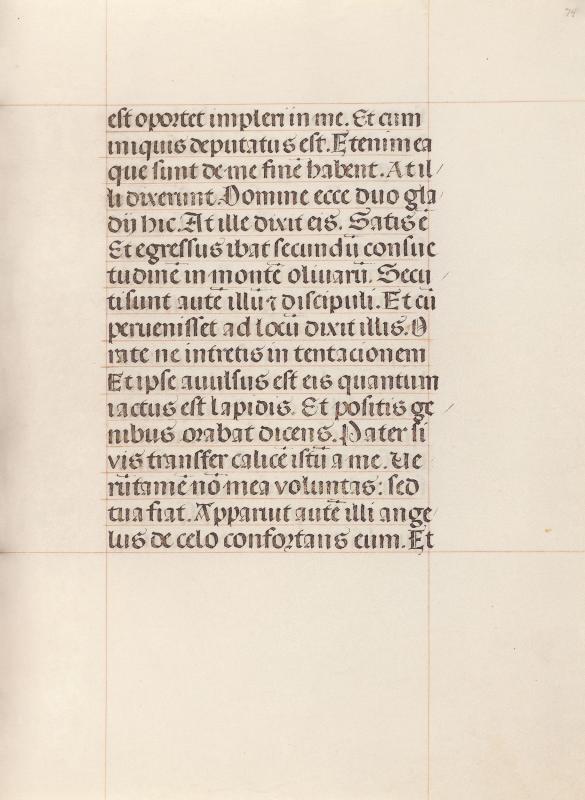 74
est oportet impleri in me. Et cum
iniquis deputatus est. Etenim ea
que sunt de me finē habent. At il/
li dixerunt. Domine ecce duo gla/
dij hic. At ille dixit eis. Satis ē
Et egressus ibat secundū consue
tudinē in montē oliuarū. Secu/
ti sunt autē illū ⁊ discipuli. Et cū
peruenisset ad locū dixit illis. O/
rate ne intretis in tentacionem
Et ipse auulsus est eis quantum
iactus est lapidis. Et positis ge/
nibus orabat dicens. Pater si
vis transfer calicē istū a me. Ue/
rūtamē nō mea voluntas: sed
tua fiat. Apparuit autē illi ange/
lus de celo confortans eum. Et